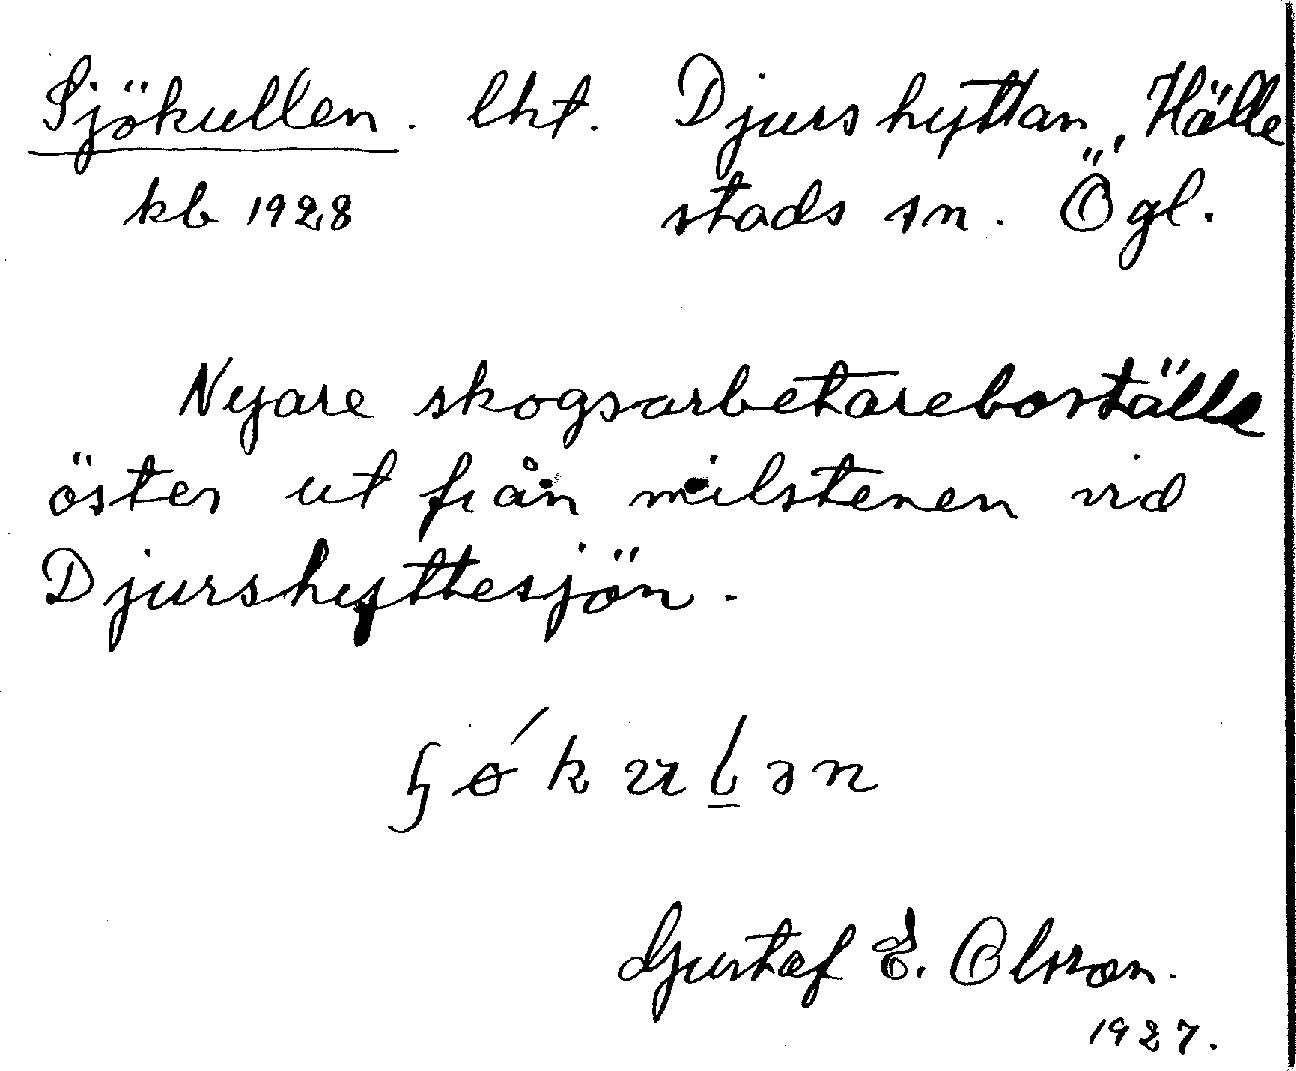 Sjökullen. lht. Djurshyttan, Hälle
kb 1928 stads sn. Ögl.
Nyare skogsarbetareboställe
öster ut från milstenen vid
Djurshyttesjön.
Gustaf E. Olsson.
1927.